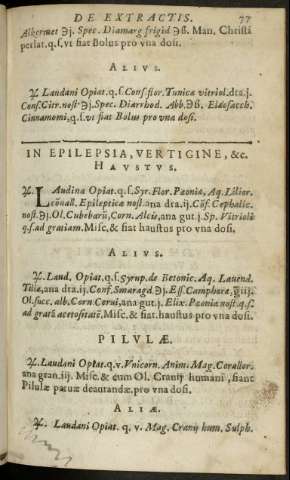 DE EXTRACTIS. 77
Alkermet ℈j. Spec. Diamarg frigid ℈ß. Man. Christi
perlat. q. s. vt fiat Bolus pro vna dosi.
ALIVS.
♃. Laudani Opiat. q. s. Cons. flor. Tunicæ vitriol. dra. j.
Cons. Citr. nost. ℈j. Spec. Diarrhod. Abb. ℈ß. Elæosacch.
Cinnamomi, q. s. vt fiat Bolus pro vna dosi.
IN EPILEPSIA, VERTIGINE, &c.
HAVSTVS.
♃. LAudina Opiat. q. s. Syr. Flor. Pæoniæ, Aq. Lilior.
cõuall. Epilepticæ nost. ana dra. ij. Cõf. Cephalic.
nost. ℈j. Ol. Cubebarũ, Corn. Alcis, ana gut. j. Sp. Vitrioli
q. s. ad gratiam. Misc. & fiat haustus pro vna dosi.
ALIVS.
♃. Laud. Opiat. q. s. Syrup. de Betonic. Aq. Lauend.
Tiliæ, ana dra. ij. Conf. Smaragd. ℈j. Ess. Camphoræ, iij.
Ol. succ. alb. Corn Cerui, ana gut. j. Elix. Pæoniæ nost. q. s.
ad gratã acetositatẽ, Misc. & fiat. haustus pro vna dosi.
PILVLÆ.
♃. Laudani Opiat. q. v. Vnicorn. Anim. Mag. Corallor.
ana gran. iij. Misc. & cum Ol. Cranij humani, fiant
Pilulæ paruæ deaurandæ, pro vna dosi.
ALIÆ.
♃. Laudani Opiat. q. v. Mag. Cranij hum. Sulph.